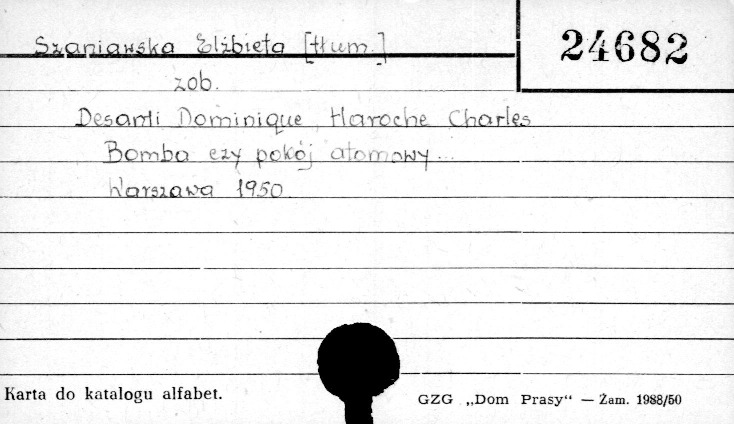 Szaniawska Elżbieta [tłum.]
24682
zob.
Desanti Dominique, Haroche Charles
Bomba czy pokój atomowy...
Warszawa 1950.
Karta do katalogu alfabet.
GZG „Dom Prasy“ — Żam. 1988/50